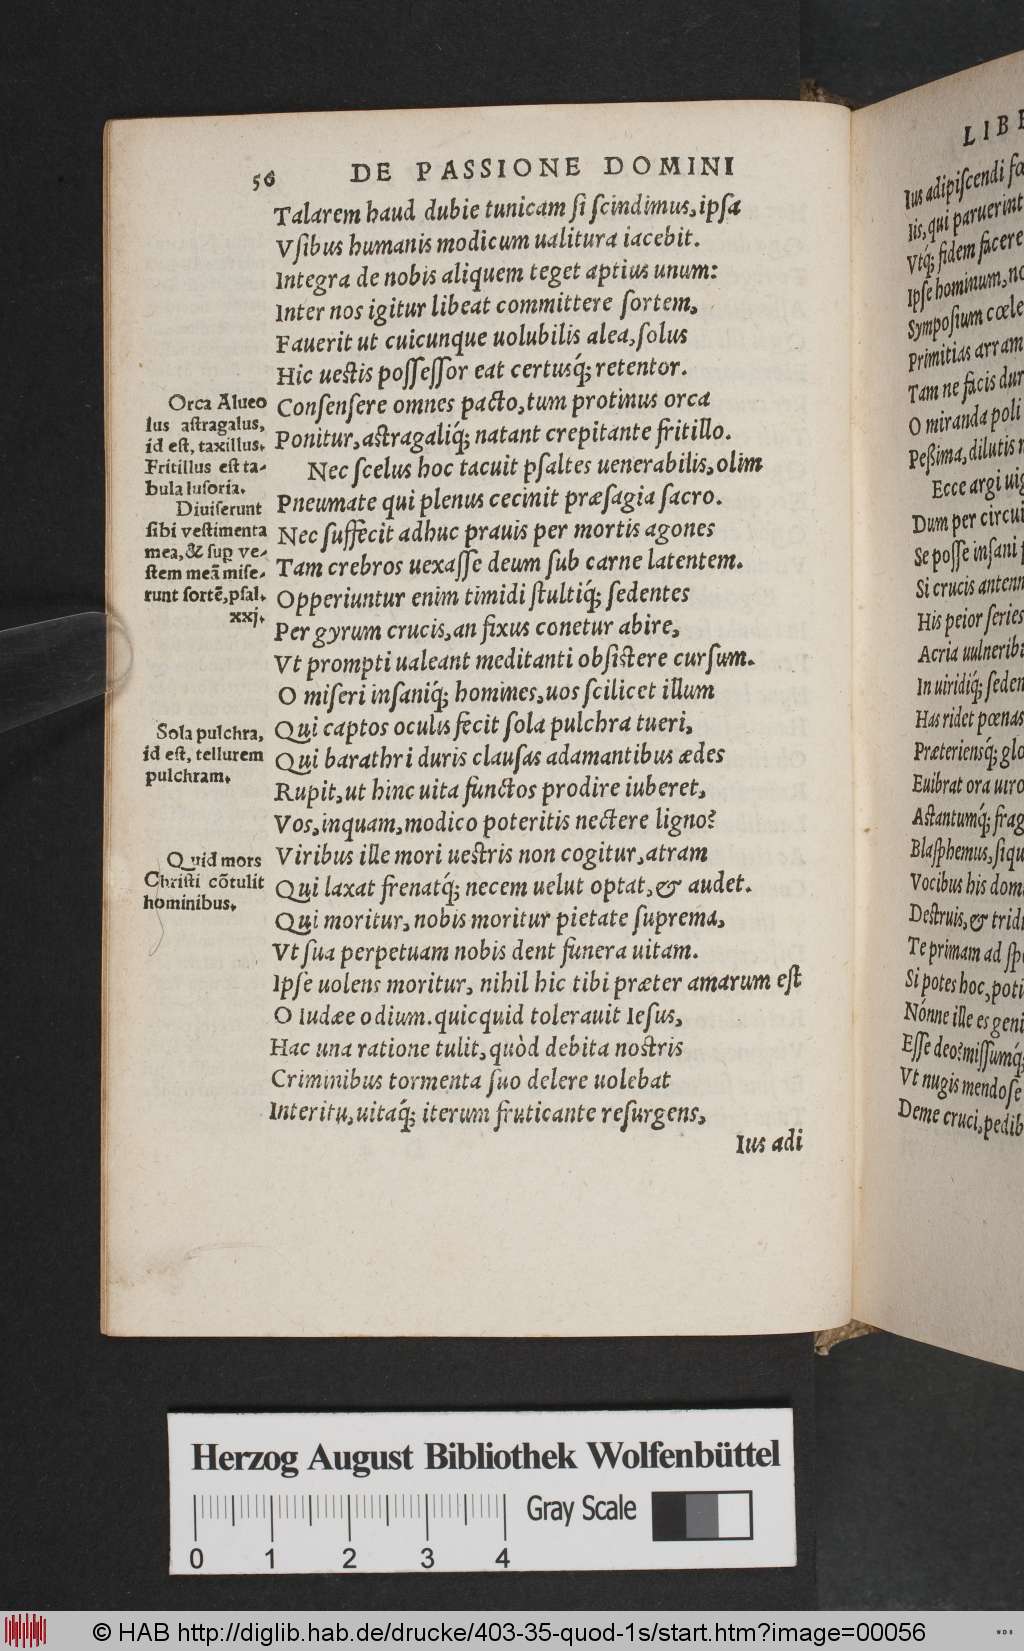 56 DE PASSIONE DOMINI
Talarem haud dubie tunicam si scindimus, ipsa
Vsibus humanis modicum ualitura iacebit.
Integra de nobis aliquem teget aptius unum:
Inter nos igitur libeat committere sortem,
Fauerit ut cuicunque uolubilis alea, solus
Hic uestis possessor eat certusq́; retentor.
Consensere omnes pacto, tum protinus orca
Ponitur, astragaliq́; natant crepitante fritillo.
Nec scelus hoc tacuit psaltes uenerabilis, olim
Pneumate qui plenus cecinit præsagia sacro.
Nec suffecit adhuc prauis per mortis agones
Tam crebros uexasse deum sub carne latentem.
Opperiuntur enim timidi stultiq́; sedentes
Per gyrum crucis, an fixus conetur abire,
Vt prompti ualeant meditanti obsistere cursum.
O miseri insaniq́; homines, uos scilicet illum
Qui captos oculis fecit sola pulchra tueri,
Qui barathri duris clausas adamantibus ædes
Rupit, ut hinc uita functos prodire iuberet,
Vos, inquam, modico poteritis nectere ligno?
Viribus ille mori uestris non cogitur, atram
Qui laxat frenatq́; necem uelut optat, & audet.
Qui moritur, nobis moritur pietate suprema,
Vt sua perpetuam nobis dent funera uitam.
Ipse uolens moritur, nihil hic tibi præter amarum est
O Iudæe odium. quicquid tolerauit Iesus,
Hac una ratione tulit, quòd debita nostris
Criminibus tormenta suo delere uolebat
Interitu, uitaq́; iterum fruticante resurgens,
Ius adi
Orca Alueo
lus astragalus,
id est, taxillus.
Fritillus est ta-
bula lusoria.
Diuiserunt
sibi vestimenta
mea, & sup ve-
stem meā mise-
runt sortē, psal.
xxj.
Sola pulchra,
id est, tellurem
pulchram.
Quid mors
Christi cōtulit
hominibus.
LIBE
Ius adipiscendi fœ
Iis, qui paruerint
Vtq́; fidem facere
Ipse hominum, no
Symposium cœle
Primitias arram
Tam ne facis dur
O miranda poli
Peßima, dilutis
Ecce argi uig
Dum per circui
Se posse insani
Si crucis antenn
His peior series
Acria uulneribu
In uiridiq́; seden
Has ridet pœnas
Præteriensq́; glo
Euibrat ora uiro
Astantumq́; frag
Blasphemus, siqu
Vocibus his dom
Destruis, & tridu
Te primam ad spe
Si potes hoc, poti
Nónne ille es geni
Esse deo? missumq́;
Vt nugis mendose
Deme cruci, pedib
Herzog August Bibliothek Wolfenbüttel
Gray Scale
0 1 2 3 4
© HAB http://diglib.hab.de/drucke/403-35-quod-1s/start.htm?image=00056